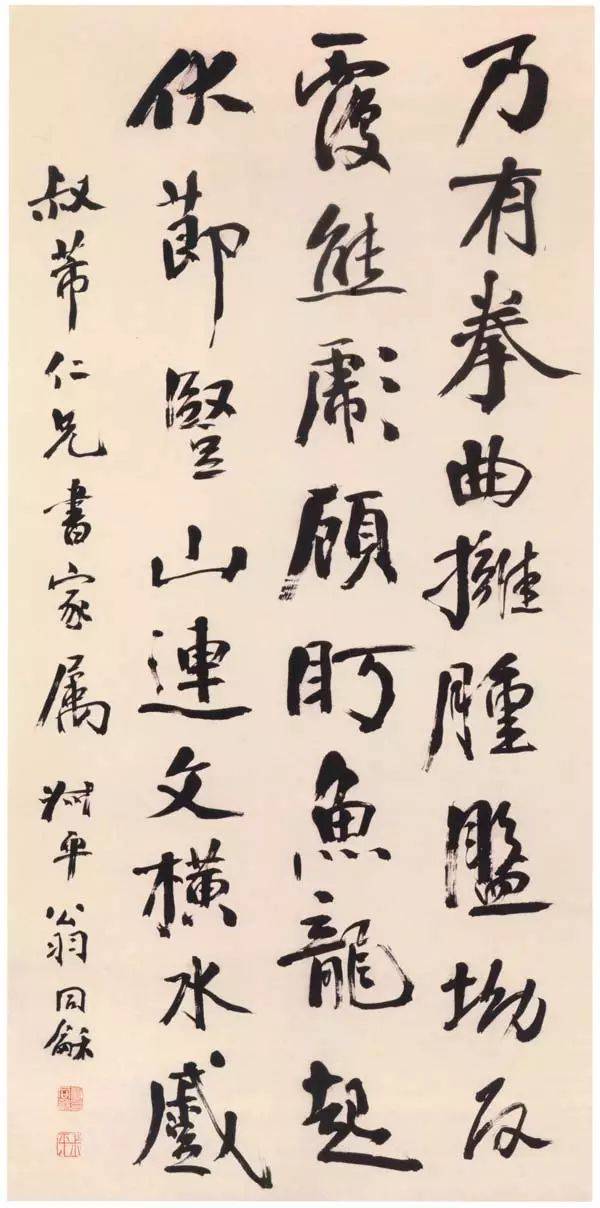 乃有拳曲擁腫盤坳反
覆熊彪顧眄魚龍起
伏莭豎山連文横水蹙
叔芾仁兄書家属 叔平翁同龢